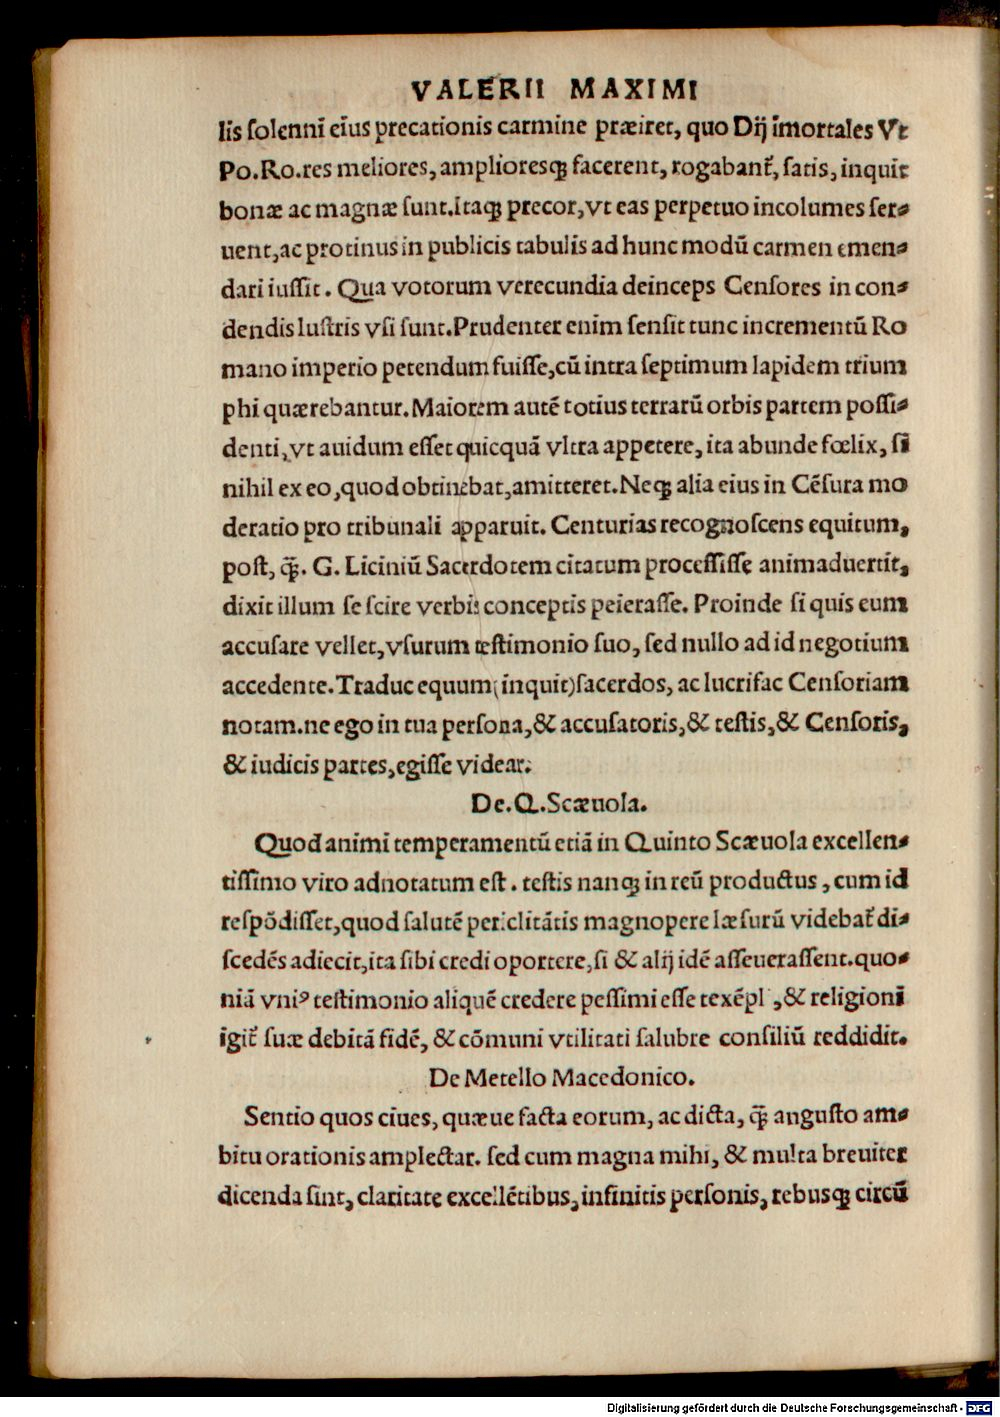 VALERII MAXIMI
lis ſolenni eius precationis carmine præiret, quo Dij īmortales Vt
Po.Ro.res meliores, amplioresq̃ facerent, rogabant᷑, ſatis, inquit
bonæ ac magnæ ſunt.Itaq̃ precor, vt eas perpetuo incolumes ſer⸗
uent, ac protinus in publicis tabulis ad hunc modū carmen emen⸗
dari iuſſit. Qua votorum verecundia deinceps Cenſores in con⸗
dendis luſtris vſi ſunt.Prudenter enim ſenſit tunc incrementū Ro
mano imperio petendum fuiſſe, cū intra ſeptimum lapidem trium
phi quærebantur. Maiorem autē totius terrarū orbis partem poſſi⸗
denti, vt auidum eſſet quicquā vltra appetere, ita abunde fœlix, ſi
nihil ex eo, quod obtinebat, amitteret.Neq̃ alia eius in Cēſura mo
deratio pro tribunali apparuit. Centurias recognoſcens equitum,
poſt, q̃. G. Liciniū Sacerdotem citatum proceſſiſſe animaduertit,
dixit illum ſe ſcire verbis conceptis peieraſſe. Proinde ſi quis eum
accuſare vellet, vſurum teſtimonio ſuo, ſed nullo ad id negotium
accedente.Traduc equum (inquit) ſacerdos, ac lucrifac Cenſoriam
notam.ne ego in tua perſona, & accuſatoris, & teſtis, & Cenſoris,
& iudicis partes, egiſſe videar.
De.Q.Scæuola.
Quod animi temperamentū etiā in Quinto Scæuola excellen⸗
tiſſimo viro adnotatum eſt. teſtis nanq̃ in reū productus, cum id
reſpōdiſſet, quod ſalutē periclitātis magnopere læſurū videbat᷑ di⸗
ſcedēs adiecit, ita ſibi credi oportere, ſi & alij idē aſſeueraſſent.quo⸗
niā vniꝰ teſtimonio aliquē credere peſſimi eſſe texēpl, & religioni
igit᷑ ſuæ debitā fidē, & cōmuni vtilitati ſalubre conſiliū reddidit.
De Metello Macedonico.
Sentio quos ciues, quæue facta eorum, ac dicta, q̃ anguſto am⸗
bitu orationis amplectar. ſed cum magna mihi, & multa breuiter
dicenda ſint, claritate excellētibus, infinitis perſonis, rebusq̃ circū
Digitalisierung gefördert durch die Deutsche Forschungsgemeinschaft - DFG